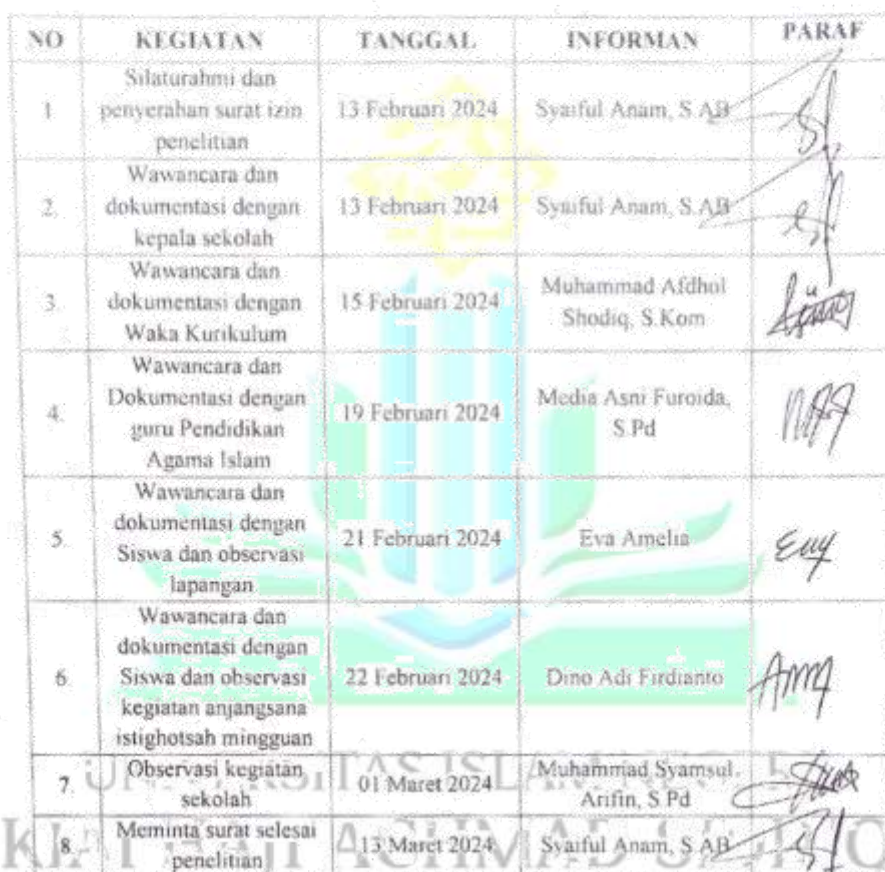 NO KEGIATAN TANGGAL INFORMAN PARAF
1 Silaturahmi dan
penyerahan surat izin
penelitian
13 Februari 2024
Syaiful Anam, S.AB
2. Wawancara dan
dokumentasi dengan
kepala sekolah
13 Februari 2024
Syaiful Anam, S.AB
3. Wawancara dan
dokumentasi dengan
Waka Kurikulum
15 Februari 2024
Muhammad Afdhol
Shodiq, S.Kom
4. Wawancara dan
Dokumentasi dengan
guru Pendidikan
Agama Islam
19 Februari 2024
Media Asni Furoida,
S.Pd
5. Wawancara dan
dokumentasi dengan
Siswa dan observasi
lapangan
21 Februari 2024
Eva Amelia
6. Wawancara dan
dokumentasi dengan
Siswa dan observasi
kegiatan anjangsana
istighotsah mingguan
22 Februari 2024
Dino Adi Firdianto
7. Observasi kegiatan
sekolah
01 Maret 2024
Muhammad Syamsul
Arifin, S.Pd
8. Meminta surat selesai
penelitian
13 Maret 2024
Syaiful Anam, S.AB